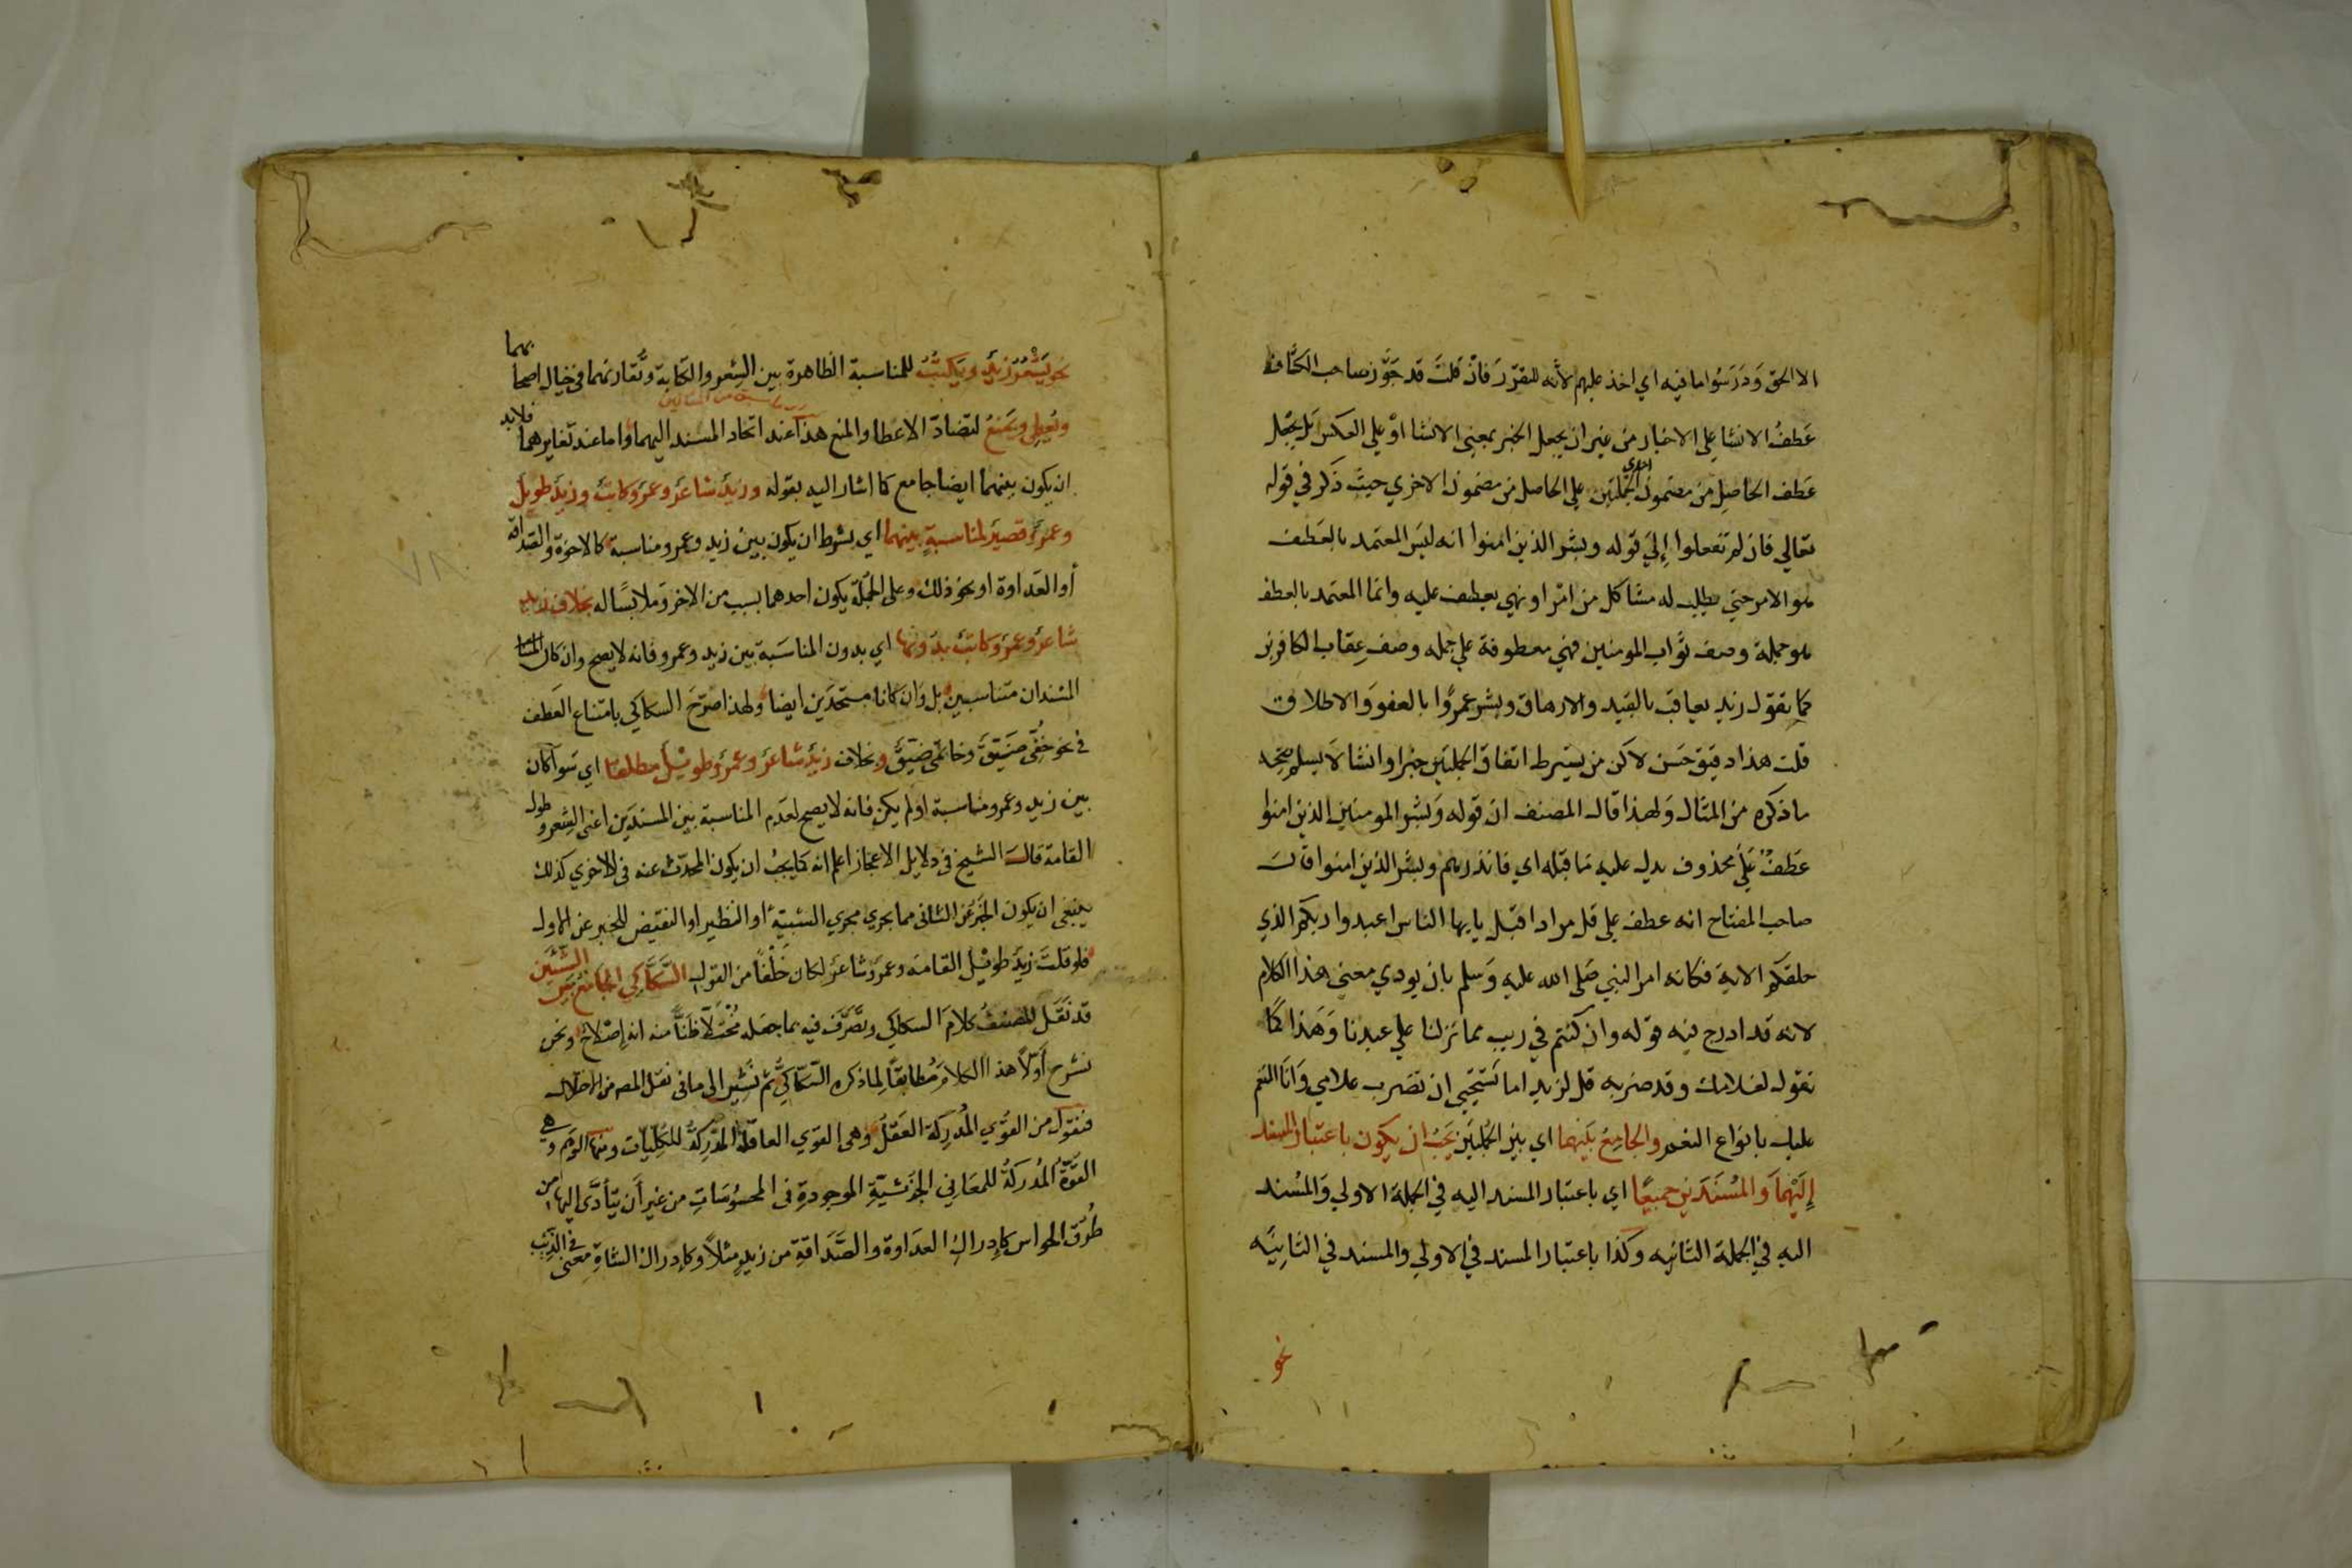 الا الحق وَدَرَسُوا ما فيه اي اخذ عليهم لأنه للتقرير فان قلتَ قد جَوَّز صاحب الكشاف
عَطفُ الانشا علي الاخبار من غير ان يجعل الخبر بمعني الانشا اوْ علي العكس بَل يجعل
عَطف الحاصِل من مضمون احدي الجملتين علي الحاصل من مضمون الاخري حيث ذكر في قوله
تعالي فان لم تفعلوا إِليَ قوله وبشر الذين امنوا انه ليس المعتمد بالعَطف
هو الامر حتي يطلب له مشاكل من امر او نهي يعطف عليه وانما المعتمد بالعطف
هو جملة وصف ثواب المومنين فهي معطوفة علي جمله وصف عِقاب الكافرين
كما تقول زيد يعاقب بالقيد والارهاق وبشر عمروًا بالعفو وَالاطلاق
قلت هذا دقيق حَسَن لاكن من يشترط اتفاق الجملتين خبرا وانشا لاَ يسلم صحه
ما ذكره من المثال وَلهذا قال المصنف ان قوله وَبشر المومنين الذين امنوا
عَطفٌ عَليَ محذوف يدل عليه مَا قبله اي فانذرهم وبشر الذين امنوا قاَلَ
صاحب المفتاح انه عطف علي قل مرادا قبل يايها الناس اعبدوا ربكم الذي
خلقكم الاية فكانه امر النبي صَلي الله عليه وَسلم بان يودي معني هذا الكلام
لانه قد ادرج فيه قوله وان كنتم في ريب مما نزلنا علي عبدنا وَهَذا كما
تقول لغلامك وقد ضربه زيد قل لزيد اما تَستحيي ان تضرب غلامي وَانَا المنعم
عليك بانواع النعم والجامِعُ بَينهما اي بين الجملتين يَجبُ ان يكون باعتبار المسند
إِليْهمَا وَالمُسْنَدَين جميعًا اي باعتبار المسند اليه في الجملة الاولي وَالمُسْند
اليه في الجملة الثانيه وكذا باعتبار المسند في الاولي والمسند في الثانِيَه
نحو
نحو يَشْعُرُ زيدٌ ويكتُبُ للمناسبة الظاهرة بين الشعر والكتابة وتقارنهما في خيال اصحابهما
ويُعطِي ويمنعُ لتضادّ الاعطا والمنع هذا عند اتحاد المسند اليهما واما عند تغايرهما فلا بد
ان يكون بينهما ايضا جامع كما اشار اليه بقوله وزيدٌ شاعرٌ وعمرٌو كاتبٌ وزيدٌ طويل
وعمرٌو قصيرٌ لمناسبةٍ بينهما اي بشرط ان يكون بين زيد وعمرو مناسبة كالاخوّة والصداقة
أو العَداوة او نحو ذلك وعلى الجُملة يكون احدهما بسبب من الاخر وَملابسًا له بخلاف زيد
شاعر وعمرو كاتبٌ بدونها اي بدون المناسَبة بين زيد وعمرو فانه لا يصح وان كان
المسندان متناسبين بل وَان كانا متحدَين ايضا ولهذا صرّحَ السكاكي بامتناع العَطف
في نحو خُفِّى ضَيّقٌ وخاتمى ضيّقٌ وبخلاف زيدٌ شاعرٌ وعمرٌو طويْلٌ مطلقا اي سَوآ كان
بين زيد وعمرو مناسبة اولم يكن فانه لا يصح لعدَم المناسبة بين المسندَين اعنى الشعر وطول
القامة قالَ الشيخ في دلايل الاعجاز اعلم انه كما يجبُ ان يكون المحدّث عنه في الاخري كذلك
ينبغى ان يكون الخبر عن الثاني مما يجري مجري الشبيه او النظير او النقيض للخبر عن الاول
فلو قلتَ زيدٌ طويْل القامَة وعمرٌو شاعرٌ لكان خَلْفًا من القول السَّكَّاكِي الجامع بين الشيئين
قد نقَل المصنفُ كلامَ السكاكي وتصَّرّفَ فيه بما جعَله مُختلاًّ ظَنًّا منه انه إِصْلاحٌ ونحن
نشرح أَوّلاً هذا الكلامَ مُطابقًا لما ذكره السَّكاكيُّ ثم نُشير الى ما في نقل المص من الاختلال
فنقول من القوَي المُدرِكة العَقلُ وهى القوي العاقلة المدركةُ للكليّات ومنها الوَهم وهي
القوّةُ المُدركةُ للمعَاني الجزئيّةِ الموجودةِ في المحسُوسَاتِ من غير أَن يَتأدَّى إليها من
طُرقِ الحواس كإِدراكِ العدَاوة والصَّدَاقةِ من زيدٍ مثلاً وكإِدراك الشاةِ معنًى في الذئب